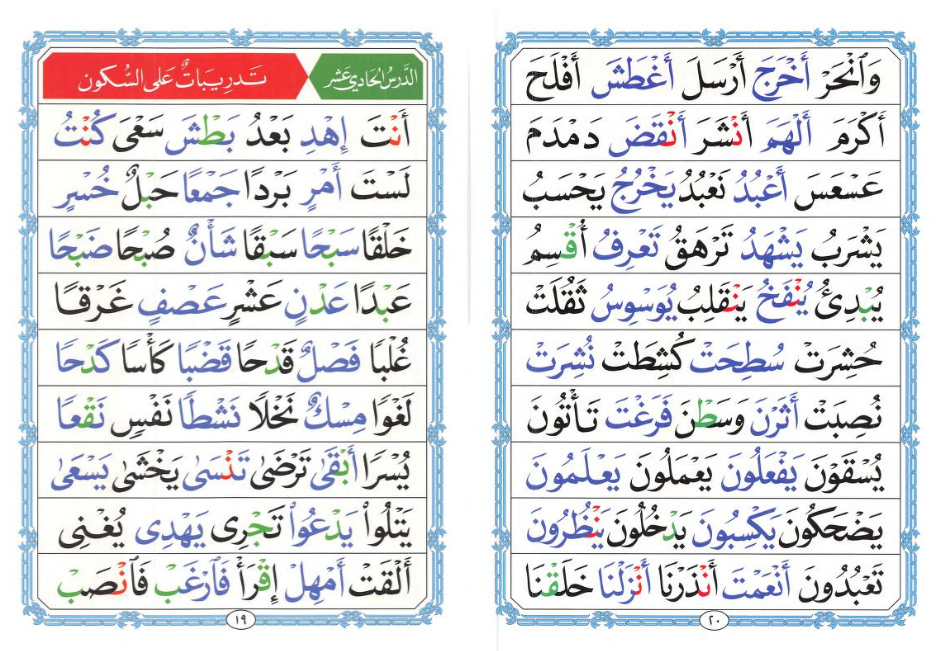 الدَّرسُ الحَادِي عَشَر تَدرِيبَاتٌ عَلى السُّكون
أَنْتَ إِهْدِ بَعْدُ بَطْشَ سَعْىَ كُنْتُ
لَسْتَ أَمْرٍ بَرْدًا جَمْعًا حَبْلٌ خُسْرٍ
خَلْقًا سَبْحًا سَبْقًا شَأْنٌ صُبْحًا ضَبْحًا
عَبْدًا عَدْنٍ عَشْرٍ عَصْفٍ غَرْقًا
غُلْبًا فَصْلٌ قَدْحًا قَضْبًا كَأْسًا كَدْحًا
لَغْوًا مِسْكٌ نَخْلًا نَشْطًا نَفْسٍ نَقْعًا
يُسْرًا أَبْقَىٰ تَرْضَىٰ تَنْسَىٰ يَخْشَىٰ يَسْعَىٰ
يَتْلُواْ يَدْعُواْ تَجْرِى يَهْدِى يُغْنِى
أَلْقَتْ أَمْهِلْ إِقْرَأْ فَٱرْغَبْ فَٱنْصَبْ
١٩
وَٱنْحَرْ أَخْرَجَ أَرْسَلَ أَغْطَشَ أَفْلَحَ
أَكْرَمَ أَلْهَمَ أَنْشَرَ أَنْقَضَ دَمْدَمَ
عَسْعَسَ أَعْبُدُ نَعْبُدُ يَخْرُجُ يَحْسَبُ
يَشْرَبُ يَشْهَدُ تَرْهَقُ تَعْرِفُ أُقْسِمُ
يُبْدِئُ يُنْفَخُ يَنْقَلِبُ يُوَسْوِسُ ثَقُلَتْ
حُشِرَتْ سُطِحَتْ كُشِطَتْ نُشِرَتْ
نُصِبَتْ أَثَرْنَ وَسَطْنَ فَرَغْتَ تَأْتُونَ
يُسْقَوْنَ يَفْعَلُونَ يَعْمَلُونَ يَعْلَمُونَ
يَضْحَكُونَ يَكْسِبُونَ يَدْخُلُونَ يَنْظُرُونَ
تَعْبُدُونَ أَنْعَمْتَ أَنْذَرْنَا أَنْزَلْنَا خَلَقْنَا
٢٠